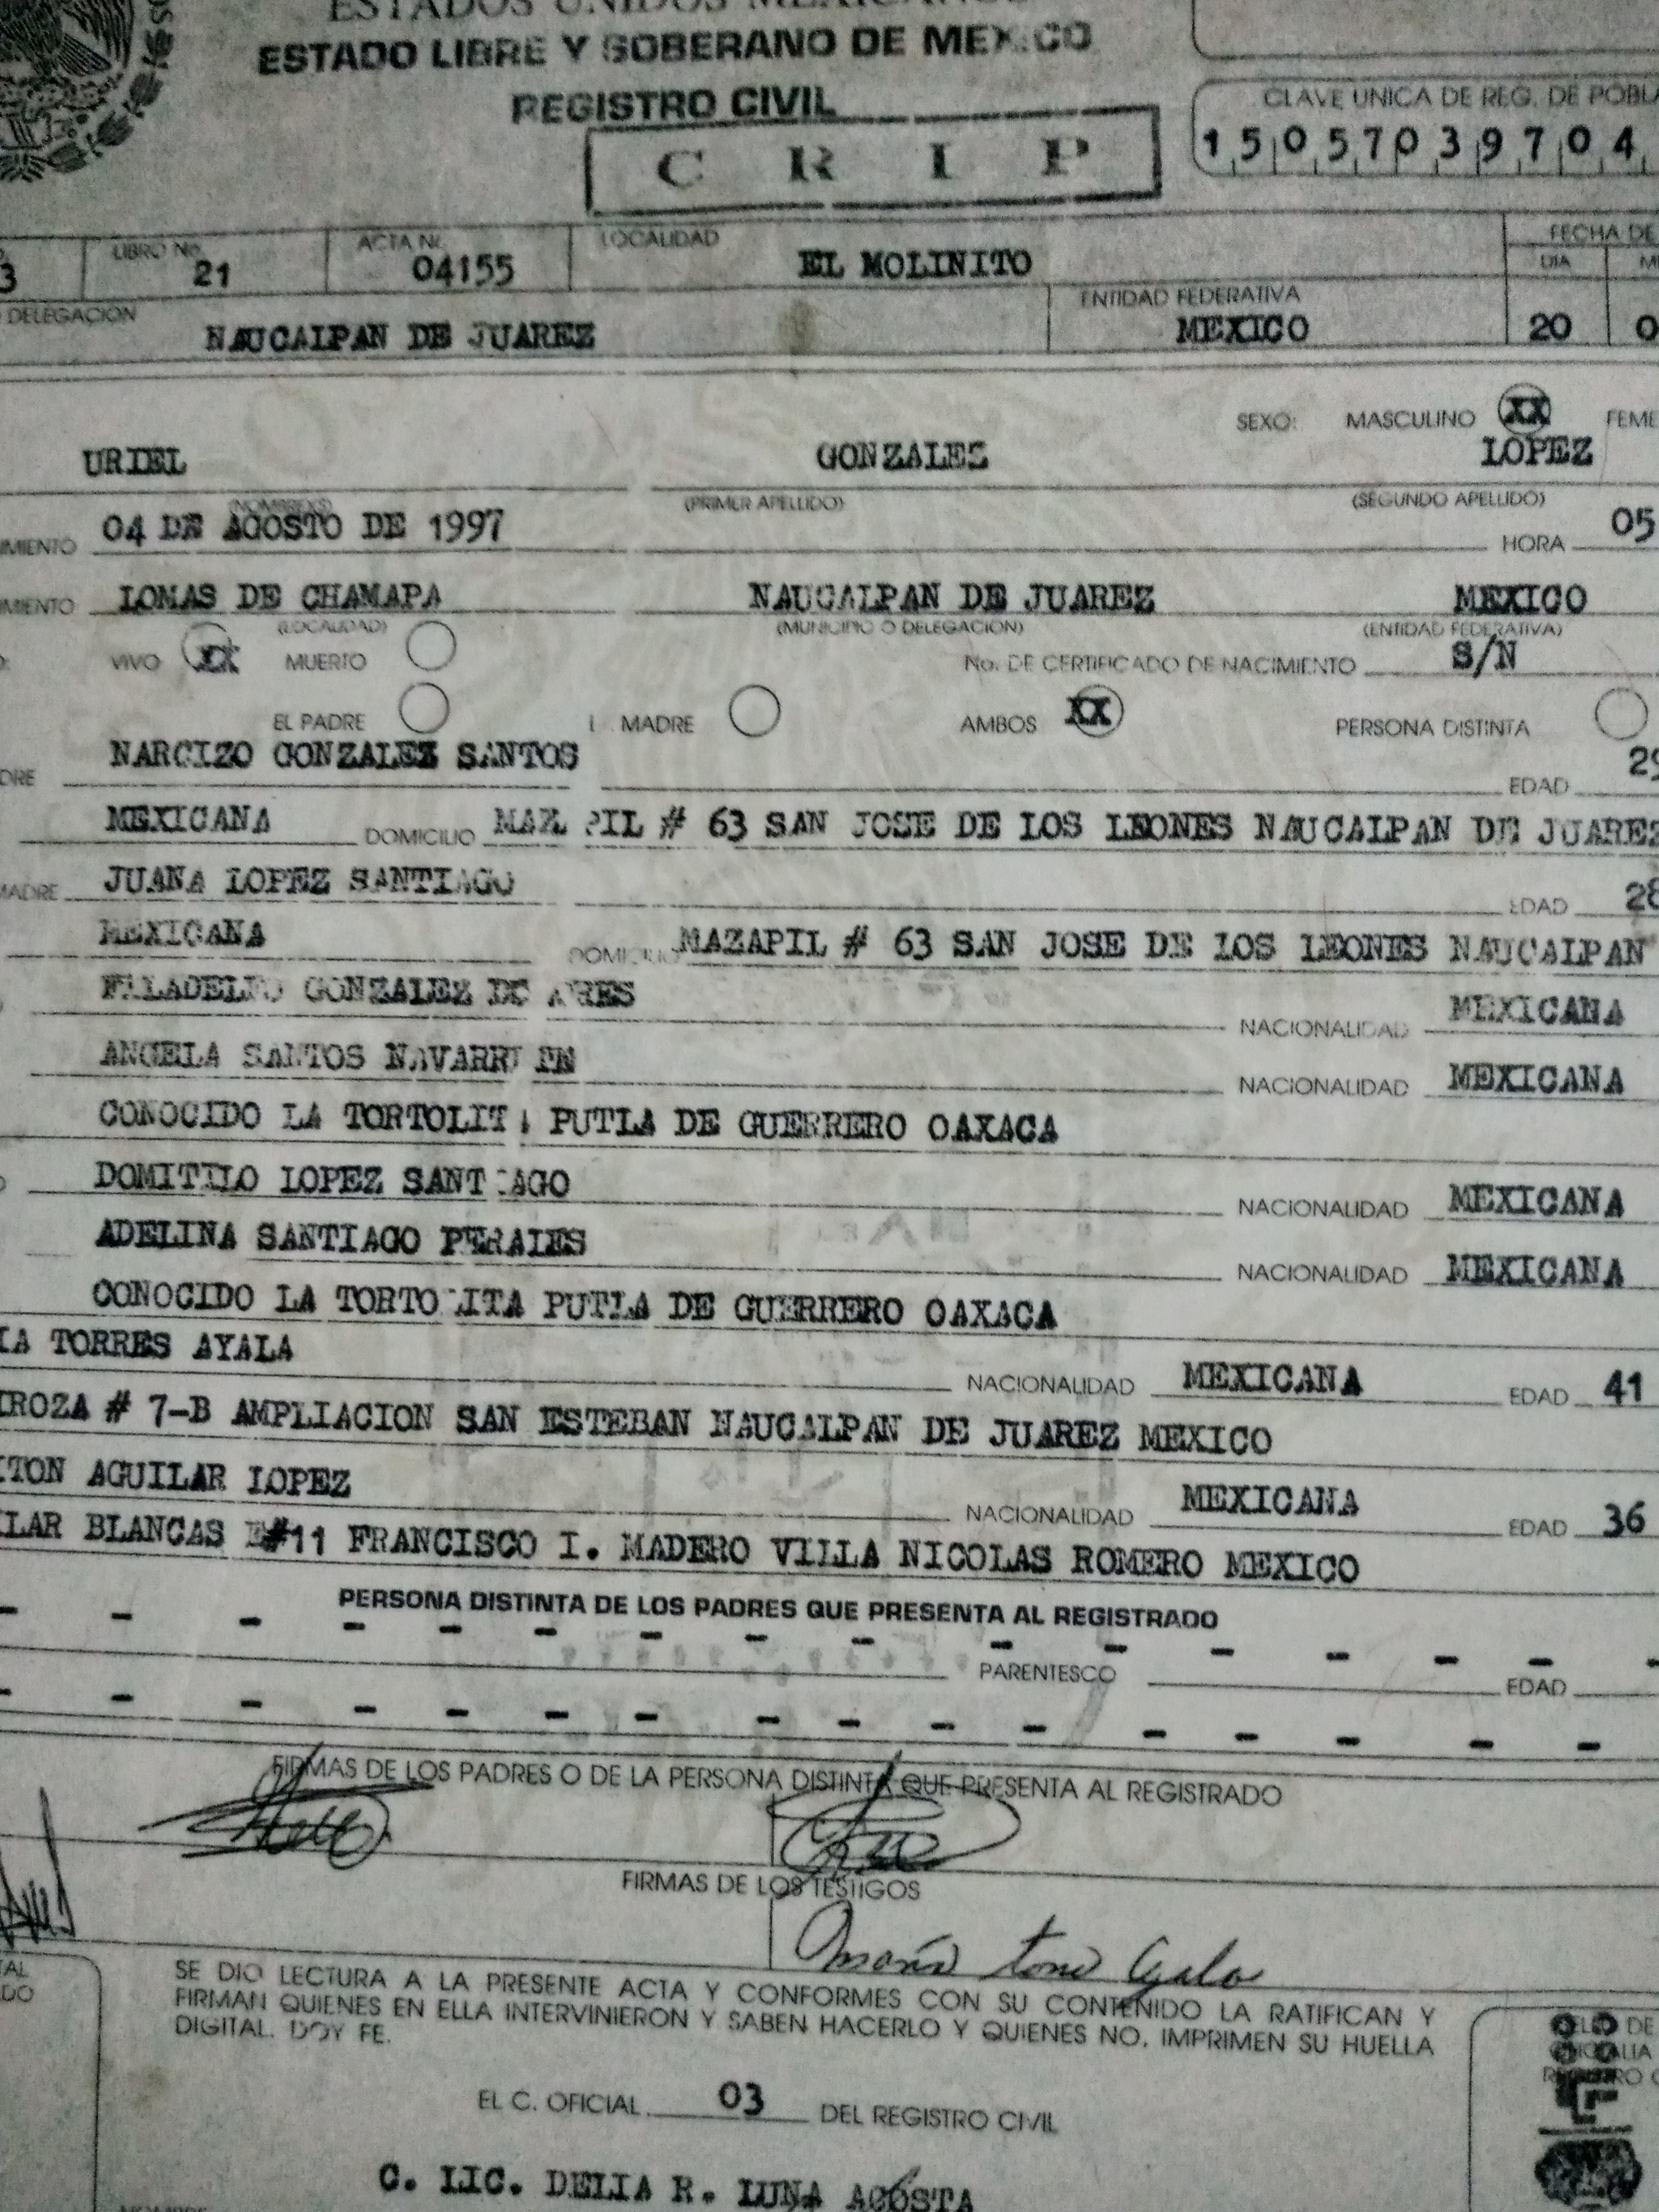 ESTADOS UNIDOS MEXICANOS
ESTADO LIBRE Y SOBERANO DE MEXICO
REGISTRO CIVIL
CLAVE UNICA DE REG. DE POBLA
1 5 0 5 7 0 3 9 7 0 4
C R I P
LIBRO No. ACTA No. LOCALIDAD FECHA DE
3 21 04155 EL MOLINITO DIA
DELEGACION NAUCALPAN DE JUAREZ ENTIDAD FEDERATIVA MEXICO 20 0
SEXO: MASCULINO XX FEME
URIEL GONZALES LOPEZ
(NOMBRE(S) (PRIMER APELLIDO) (SEGUNDO APELLIDO)
IMIENTO 04 DE AGOSTO DE 1997 HORA 05
IMIENTO LOMAS DE CHAMAPA NAUCALPAN DE JUAREZ MEXICO
(LOCALIDAD) (MUNICIPIO O DELEGACION) (ENTIDAD FEDERATIVA)
VIVO XX MUERTO No. DE CERTIFICADO DE NACIMIENTO S/N
EL PADRE MADRE AMBOS XX PERSONA DISTINTA
DRE NARCIZO GONZALEZ SANTOS EDAD 29
MEXICANA DOMICILIO MAZ PIL # 63 SAN JOSE DE LOS LEONES NAUCALPAN DE JUAREZ
MADRE JUANA LOPEZ SANTIAGO EDAD 28
MEXICANA DOMICILIO MAZAPIL # 63 SAN JOSE DE LOS LEONES NAUCALPAN
GONZALEZ NACIONALIDAD MEXICANA
ANGELA SANTOS NACIONALIDAD MEXICANA
CONOCIDO LA TORTOLIT PUTLA DE GUERRERO OAXACA
DOMITILO LOPEZ SANT AGO NACIONALIDAD MEXICANA
ADELINA SANTIAGO PERALES NACIONALIDAD MEXICANA
CONOCIDO LA TORTO ITA PUTLA DE GUERRERO OAXACA
IA TORRES AYALA NACIONALIDAD MEXICANA EDAD 41
IROZA # 7-B AMPLIACION SAN ESTEBAN NAUCALPAN DE JUAREZ MEXICO
ITON AGUILAR LOPEZ NACIONALIDAD MEXICANA EDAD 36
LAR BLANCAS #11 FRANCISCO I. MADERO VILLA NICOLAS ROMERO MEXICO
PERSONA DISTINTA DE LOS PADRES QUE PRESENTA AL REGISTRADO
- - - - - - - - - - - - - - -
PARENTESCO EDAD
- - - - - - - - - - - - - - -
FIRMAS DE LOS PADRES O DE LA PERSONA DISTINTA QUE PRESENTA AL REGISTRADO
FIRMAS DE LOS TESTIGOS
SE DIO LECTURA A LA PRESENTE ACTA Y CONFORMES CON SU CONTENIDO LA RATIFICAN Y
FIRMAN QUIENES EN ELLA INTERVINIERON Y SABEN HACERLO Y QUIENES NO, IMPRIMEN SU HUELLA
DIGITAL. DOY FE.
EL C. OFICIAL 03 DEL REGISTRO CIVIL
C. LIC. DELIA R. LUNA ACOSTA